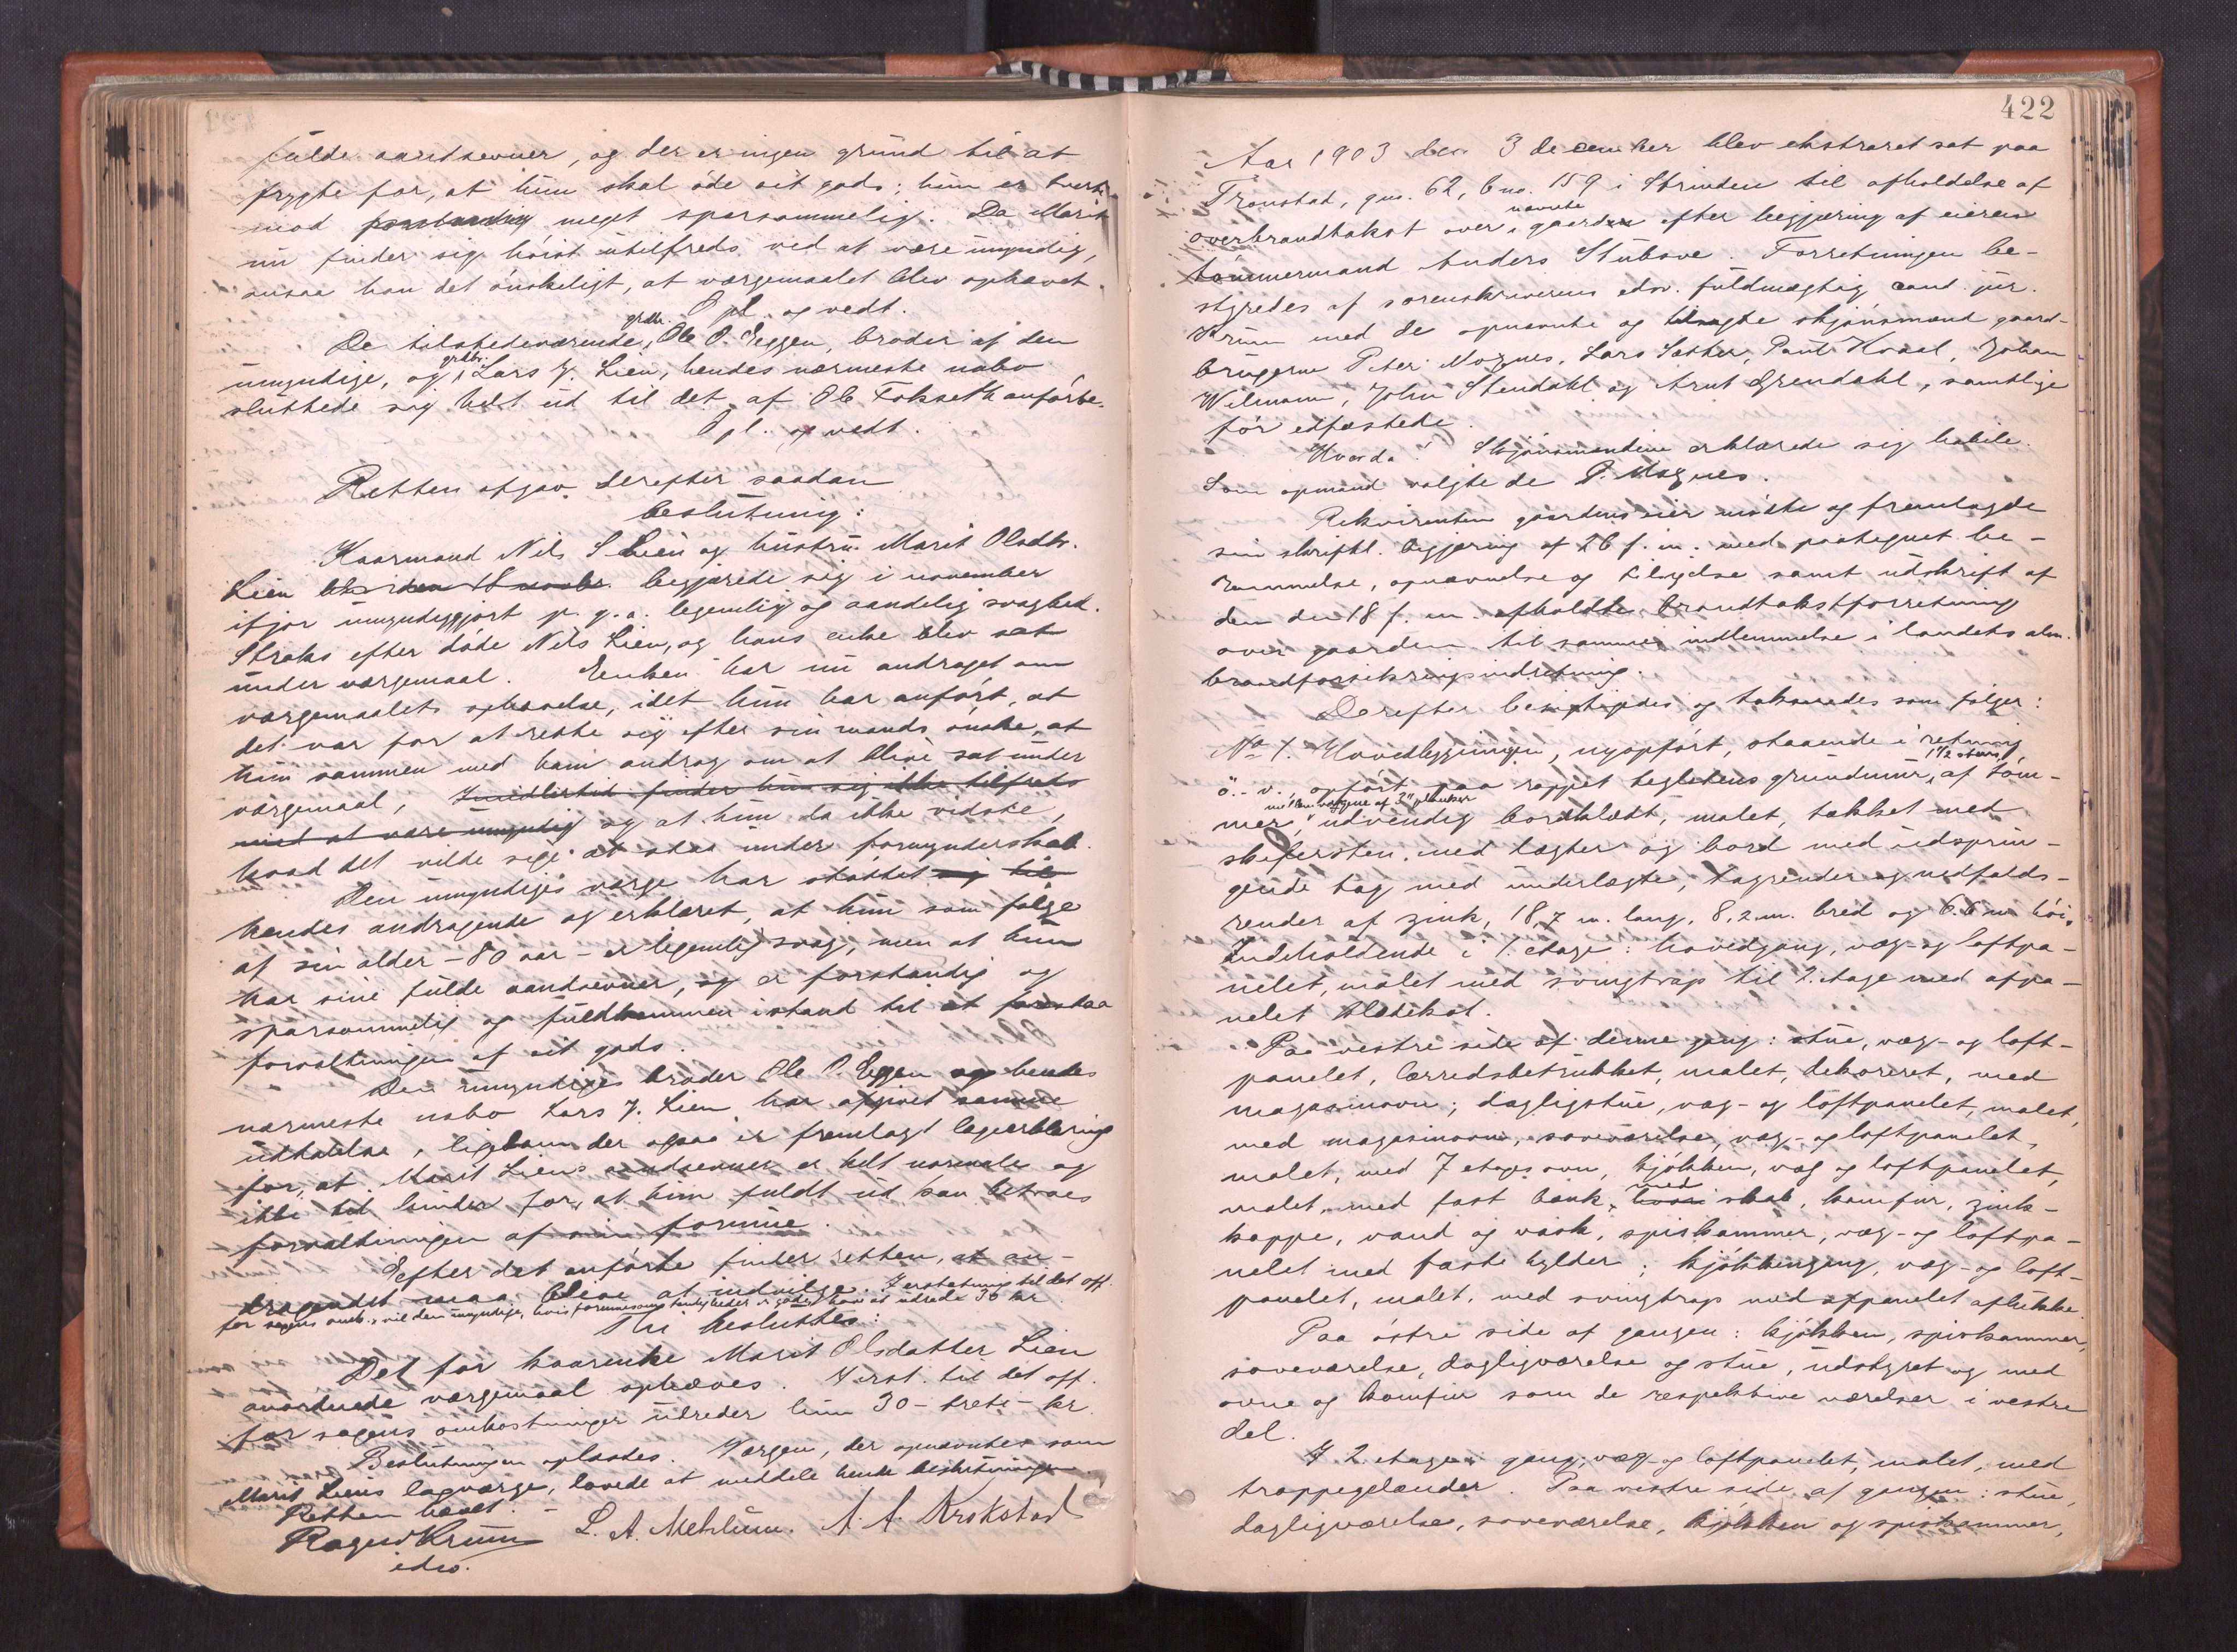 fulde aandsevner, og der er ingen grund til at
frygte for, at hun skal øde sit gods; hun er tvert-
imod forstandig meget sparsommelig. Da Marit
nu finder sig høist utilfreds ved at være umyndig,
ansaa han det ønskeligt, at værgemaalet blev ophævet.
Opl. og vedt.
De tilstedeværende, grdbr. Ole O. Eggen, broder af den
umyndige, og grdbr. Lars J. Lien, hendes nærmeste nabo
sluttede sig helt ud til det af Ole Fokseth anførte.
Opl. og vedt.
Retten afgav derefter saadan
beslutning:
Kaarmand Nils S Lien og hustru Marit Olsdtr.
Lien begjærede sig i november
ifjor umyndiggjort p. g. a. legemlig og aandelig svaghed.
Straks efter døde Nils Lien, og hans enke blev sat
under værgemaal. Enken har nu andraget om
værgemaalets ophævelse, idet hun har anført, at
det var for at rette sig efter sin mands ønske, at
hun sammen med ham androg om at blive sat under
værgemaal, Imidlertid finder hun sig ikke tilfreds
med at være umyndig og at hun da ikke vidste,
hvad det vilde sige at staa under formynderskab.
Den umyndiges værge har støttet sig til
hendes andragende og erklæret, at hun som følge
af sin alder - 80 aar - er legemlig svag, men at hun
har sine fulde aandsevner, og er forstandig og
sparsommelig og fuldkommen istand til at forestaa
forvaltningen af sit gods.
Den umyndiges broder Ole O. Eggen og hendes
nærmeste nabo Lars J. Lien har afgivet samme
udtalelse, ligesom der ogsaa er fremlagt lægeerklæring
for, at Marit Liens aandsevner er helt normale og
ikke til hinder for, at hun fuldt ud kan betroes
forvaltningen af sin formue.
Efter det anførte finder retten, at an-
dragendet maa blive at indvilge. I erstatning til det off.
for sagens omk., vil den umyndige, hvis formuesomstændigheder er gode, have at udrede 30 kr.
Thi besluttes:
Det for kaarenke Marit Olsdatter Lien
anordnede værgemaal ophæves. I erst. til det off.
for sagens omkostninger udreder hun 30 - treti - kr.
Beslutningen oplæstes. Værgen, der opnævntes som
Marit Liens lagværge, lovede at meddele hende beslutningen.
Retten hævet.
Ragnv Krum L. A. Mehlum. A. A. Krokstad
edsv.
422
Aar 1903 den 3 december blev ekstraret sat paa
Tronstad, gno. 62, bno. 159 i Strinden til afholdelse af
overbrandtakst over nævnte gaard efter begjæring af eieren
tømmermand Anders Stubsve. Forretningen be-
styredes af sorenskriverens edsv. fuldmægtig cand. jur.
Krum med de opnævnte og tilsagte skjønsmænd gaard-
brugerne Peter Moznes, Lars Sæther, Pant Hoset, Johan
Wilmann, John Stendahl og Arnt Grendahl, samtlige
før edfæstede.
Hvorda! Skjønsmændene erklærede sig habile.
Som opmand valgte de P. Moznes.
Rekvirenten gaardens eier mødte og fremlagde
sin skriftl. begjæring af 26 f. m. med paategnet be-
rammelse, opnævnelse og tilsigelse samt udskrift af
den den 18 f. m. afholdte brandtakstforretning
over gaarden til sammes indlemmelse i landets alm.
brandforsikringsindretning.
Derefter besigtigedes og takseredes som følger:
No 1. Hovedbygningen, nyopført, staaende i retning
ø. - v., opført paa rappet teglstens grundmur, 1 1/2 stens, af tøm-
mer, mellemvæggene af 3" planker udvendig bordklædt, malet, tækket med
skifersten, med lægter og bord med udsprin-
gende tag med underlægte, tagrender og nedfalds-
render af zink, 18,7 m. lang, 8,2 m. bred og 6.6 m. høi.
Indeholdende i 1. etage: hovedgang, væg- og loftpa-
nelet, malet med svingtrap til 2. etage med afpa-
nelet klædekot.
Paa vestre side af denne gang: stue, væg- og loft-
panelet, lærredsbetrukket, malet, dekoreret, med
magasinovn; dagligstue, væg- og loftpanelet, malet,
med magasinovn, soveværelse, væg- og loftpanelet,
malet, med 7 etages ovn, kjøkken, væg og loftpanelet,
malet, med fast bænk, med skab, komfur, zink-
kappe, vand og vask, spiskammer, væg- og loftpa-
nelet med faste hylder; kjøkkengang, væg- og loft-
panelet, malet, med svingtrap med afpanelet aflukke.
Paa østre side af gangen: kjøkken, spiskammer,
soveværelse, dagligværelse og stue, udstyret og med
ovne og komfur som de respektive værelser i vestre
del.
I 2. etage: gang, væg- og loftpanelet, malet, med
trappegelænder. Paa vestre side af gangen: stue,
dagligværelse, soveværelse, kjøkken og spiskammer,